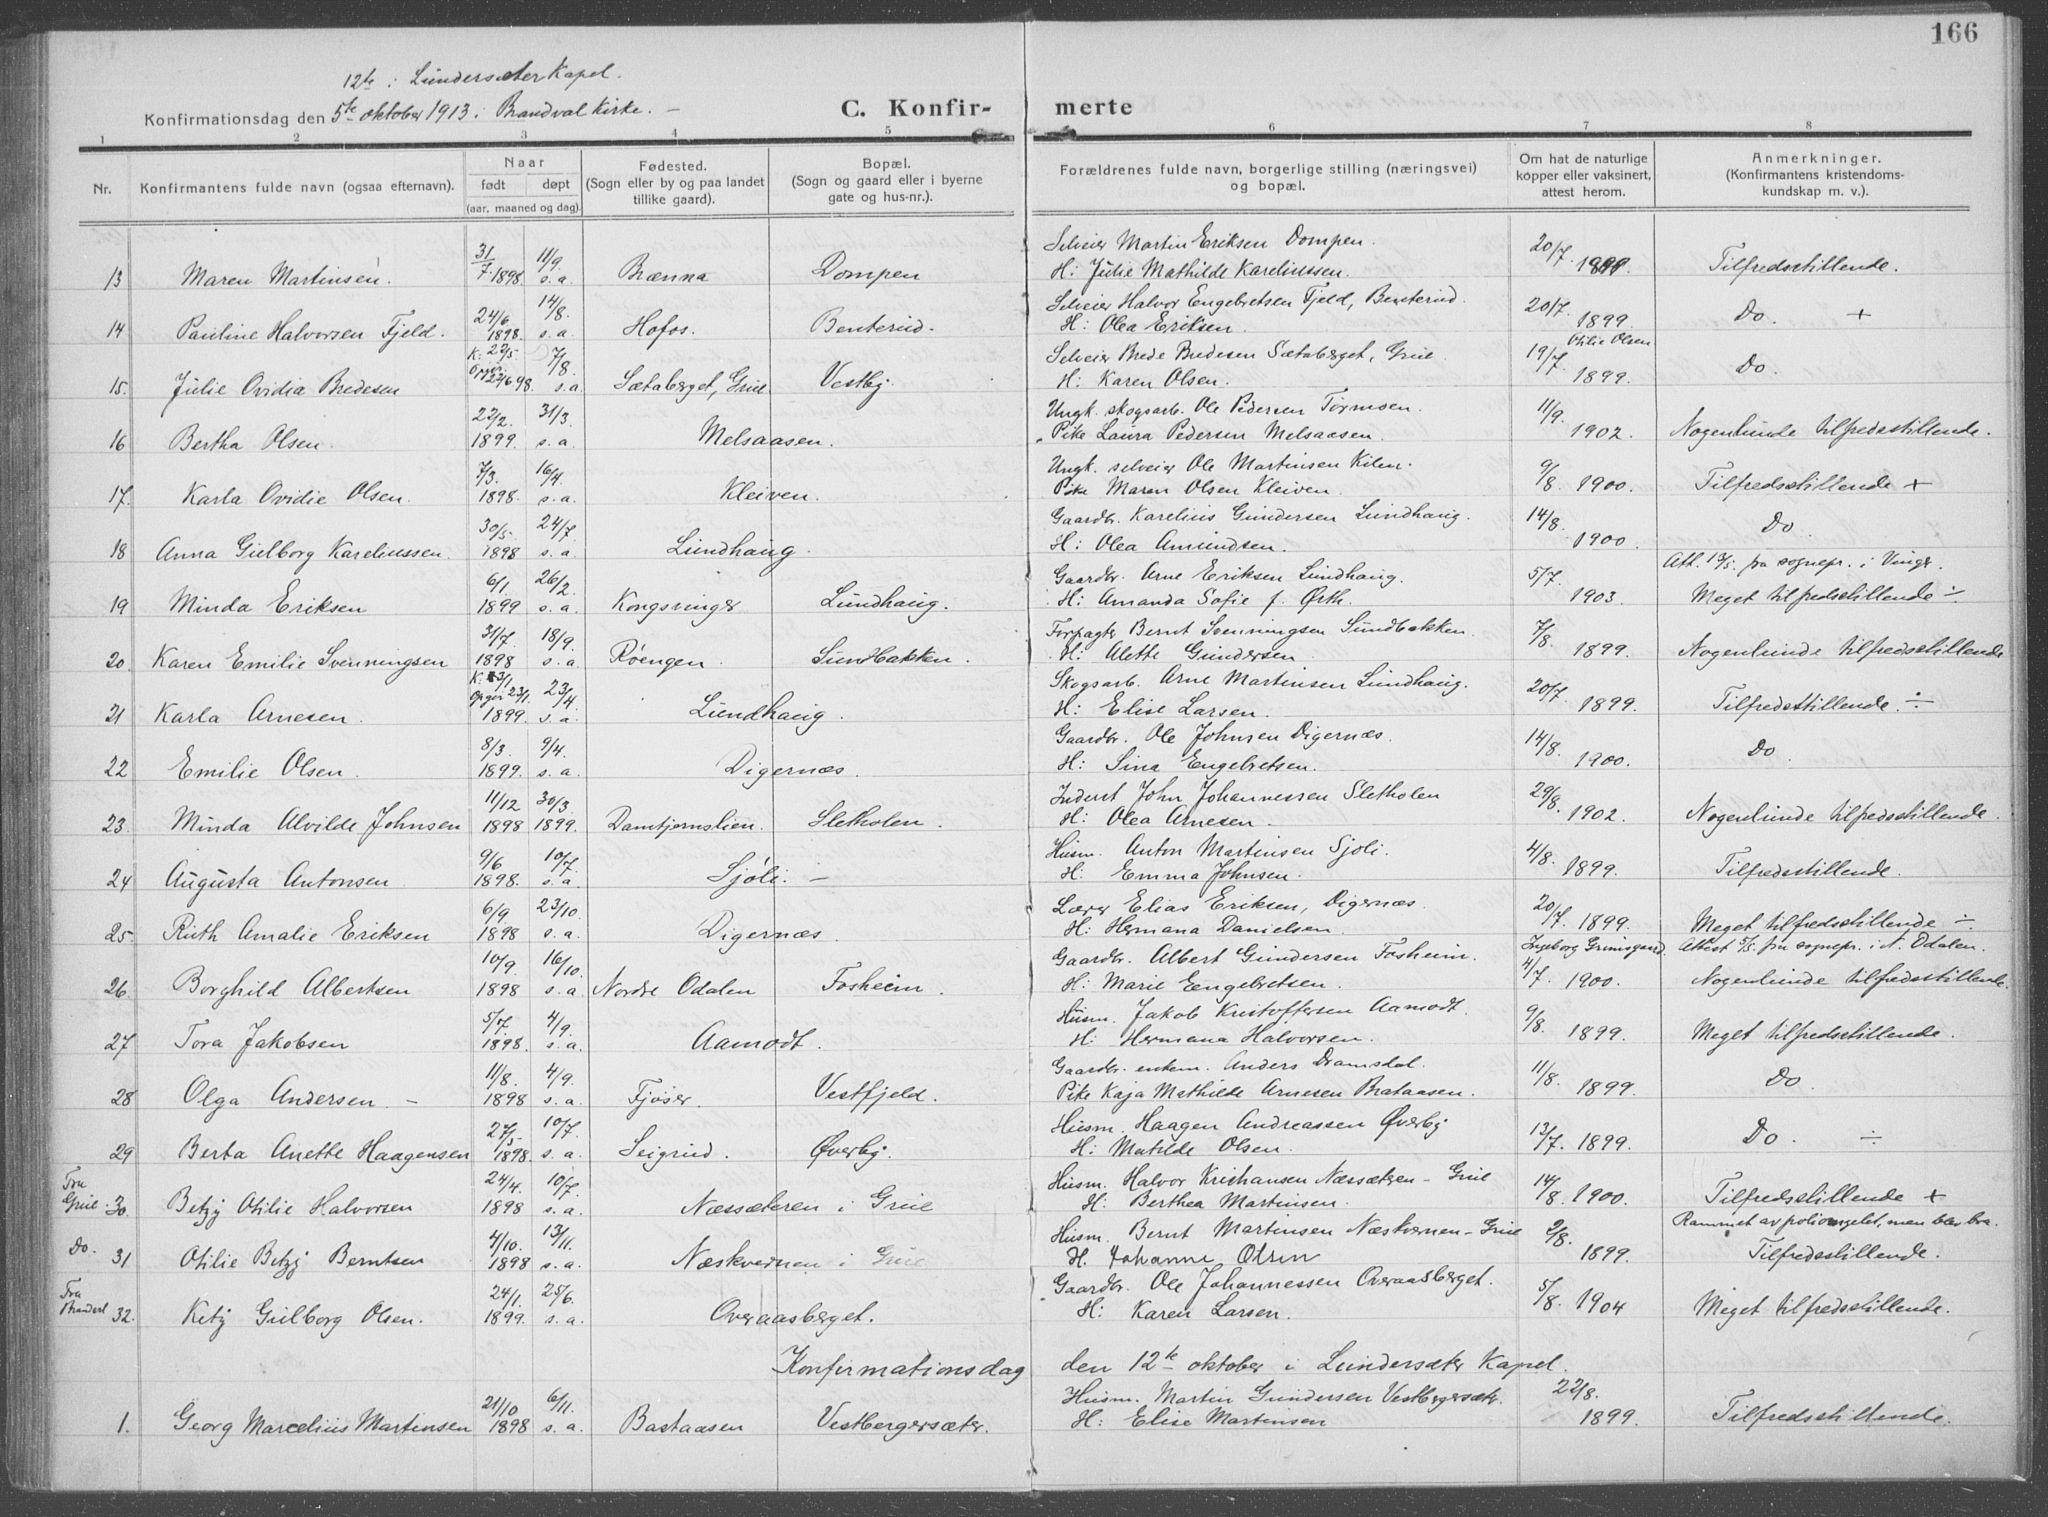 166
12te i Lundersæter Kapel.
Konfirmationsdag den 5te oktober 1913 i Brandval Kirke. –
C. Konfir- merte
1 2 3 4 5 6 7 8
Nr. Konfirmantens fulde navn (ogsaa efternavn). Naar født døpt (aar, maaned og dag). Fødested. (Sogn eller by og paa landet tillike gaard). Bopæl. (Sogn og gaard eller i byerne gate og hus-nr.). Forældrenes fulde navn, borgerlige stilling (næringsvei) og bopæl. Om hat de naturlige kopper eller vaksinert, attest herom. Anmerkninger. (Konfirmantens kristendoms-kundskap m. v.).
13 Maren Martinsen. 31/7 1898. 11/9. s.a. Brænna Dompen Selveier Martin Eriksen Dompen. H: Julie Mathilde Kareliussen. 20/7. Tilfredsstillende.
14 Pauline Halvorsen Fjeld. 24/6 1898. 14/8. s.a. Hofos. Benterud. Selveier Halvor Engebretsen Fjeld, Benterud. H: Olea Eriksen. 20/7. 1899. Do. +
15. Julie Ovidia Bredesen K: 22/5 Opgir 22/6 98. 7/8. s.a. Sætaberget, Grue Vestby. Selveier Brede Bredesen Sætaberget, Grue. H: Karen Olsen. Otilie Olsen 19/7. 1899. Do.
16 Bertha Olsen. 22/2. 1899. 31/3. s.a. Melsaasen. Ungk. skogsarb. Ole Pedersen Tormoen. Pike Laura Pedersen Melsaasen. 11/9. 1902. Nogenlunde tilfredsstillende.
17. Karla Ovidie Olsen. 7/3. 1898. 16/4. s.a. Kleiven. Ungk. selveier Ole Martinsen Kilen. Pike Maren Olsen Kleiven. 9/8. 1900. Tilfredsstillende +
18 Anna Gulborg Kareliussen. 30/5. 1898 24/7. s.a. Lundhaug. Gaardbr. Karelius Gundersen Lundhaug. H: Olea Amundsen. 14/8. 1900. Do
19 Minda Eriksen 6/1 1899 26/2. s.a. Kongsvinger Lundhaug. Gaardbr. Arne Eriksen Lundhaug. H: Amanda Sofie f. Ørth. 5/7. 1903. Att. 13/5. fra sognepr. i Vinger. Meget tilfredsstillende ÷
20 Karen Emilie Svenningsen 31/7. 1898 18/9. s.a. Røengen. Sundbakken. Forpagter Bernt Svenningsen Sundbakken. H: Alette Gundersen. 7/8. 1899. Nogenlunde tilfredsstillende
21 Karla Arnesen. K: 3/1 Opgir 23/1. 1899. 23/4. s.a. Lundhaug. Skogsarb. Arne Martinsen Lundhaug. H: Elise Larsen. 20/7. 1899. Tilfredsstillende. ÷
22 Emilie Olsen. 8/3. 1899. 9/4. s.a. Digernæs. Gaardbr. Ole Johnsen Digernæs. H: Sina Engebretsen. 14/8. 1900. Do
23. Minda Alvilde Johnsen 11/12 1898 30/3. 1899. Damtjernslien. Sletholen. Inderst John Johannessen Sletholen H: Olea Arnesen. 29/8. 1902. Nogenlunde tilfredsstillende.
24 Augusta Antonsen. 9/6 1898. 10/7. s.a. Sjøli. – Husm. Anton Martinsen Sjøli. H: Emma Johnsen. 4/8. 1899. Tilfredsstillende.
25. Ruth Amalie Eriksen 6/9. 1898 23/10. s.a. Digernæs. Lærer Elias Eriksen, Digernæs. H: Hermana Danielsen. 20/7. 1899. Meget tilfredsstillende ÷
26. Borghild Albertsen 10/9. 1898 16/10. s.a. Nordre Odalen Fosheim. Gaardbr. Albert Gundersen Fosheim. H: Marie Engebretsen. Ingeborg Grimsgaard. 4/7. 1900. Attest 5/5. fra sognepr. i N. Odalen. Nogenlunde tilfredsstillende.
27 Tora Jakobsen 5/7. 1898. 4/9. s.a. Aamodt. Husm. Jakob Kristoffersen Aamodt. H: Hermana Halvorsen. 9/8. 1899. Meget tilfredsstillende.
28 Olga Andersen. – 11/8. 1898 4/9. s.a. Fjøser. Vestfjeld. Gaardbr. enkem. Anders Dramsdal. Pike Kaja Mathilde Arnesen Brataasen. 11/8. 1899. Do
29 Berta Anette Haagensen 27/5 1898. 10/7. s.a. Seigrud. Øverby. Husm. Haagen Andreassen Øverby H: Matilde Olsen. 13/7. 1899. Do. ÷
Fra Grue 30. Betzy Otilie Halvorsen 24/4. 1898 10/7. s.a. Næssæteren i Grue Husm. Halvor Kristiansen Næssæteren – Grue H: Berthea Martinsen. 14/8. 1900. Tilfredsstillende +
Do. 31 Otilie Betzy Berntsen 4/10. 1898 13/11. s.a. Næskvernen i Grue Husm. Bernt Martinsen Næskvernen – Grue H. Johanne Olsen 2/8. 1899. Rammet av slag, men blev bra. Tilfredsstillende.
Fra 32. Kitty Gulborg Olsen. 24/1. 1899. 25/6. s.a. Overaasberget. Gaardbr. Ole Johannessen Overaasberget. H: Karen Larsen. 5/8. 1904 Meget tilfredsstillende.
Konfirmationsdag den 12te oktober i Lundersæter Kapel.
1. Georg Marcelius Martinsen 21/10 1898 6/11. s.a. Bastaasen Vestbergersæter. Husm. Martin Gundersen Vestbergersæter. H: Elise Martinsen 22/8. 1899. Tilfredsstillende.